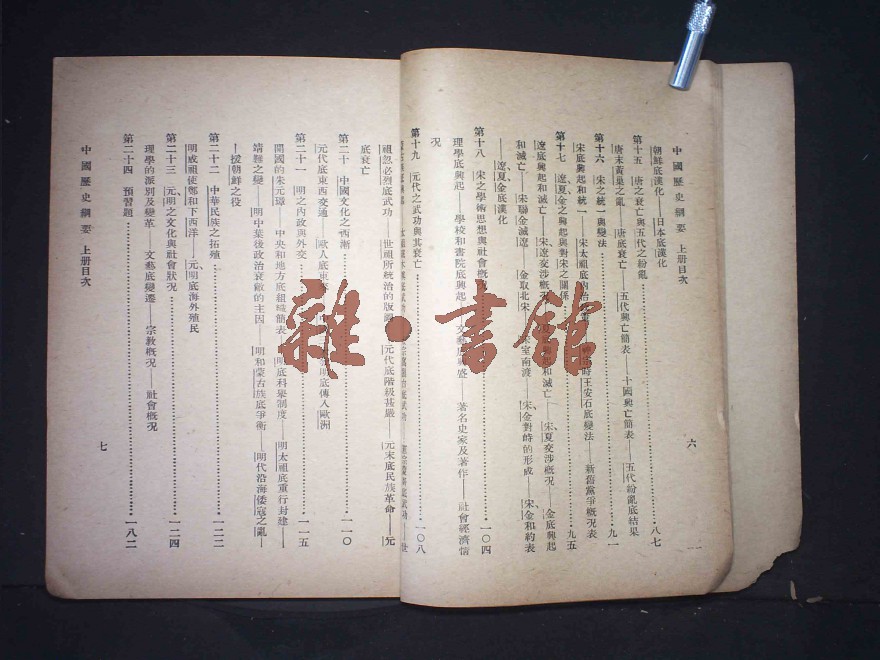 中國歷史綱要 上册目次 六
朝鮮底漢化 日本底漢化
第十五 唐之衰亡與五代之紛亂 八七
唐末黃巢之亂——唐底衰亡——五代興亡簡表——十國興亡簡表——五代紛亂底結果
第十六 宋之統一與變法 九一
宋底興起和統一——宋太祖底內治 王安石底變法——新舊黨爭概况表
第十七 遼夏金之興起與對宋之關係 九五
遼底興起和滅亡——宋、遼交涉概况 起和滅亡——宋、夏交涉概况——金底興起
和滅亡——宋聯金滅遼——金取北宋——宋室南渡——宋、金對峙的形成——宋、金和約表
——遼、夏、金底漢化
第十八 宋之學術思想與社會概况 一〇四
理學底興起——學校和書院底興起——文藝 盛——著名史家及著作——社會經濟情
况
第十九 元代之武功與其衰亡 一〇八
祖忽必烈底武功——世祖所統治的版圖——元代底階級甚嚴——元末底民族革命——元
底衰亡
第二十 中國文化之西漸 一一〇
元代底東西交通——歐人底東 明底傳入歐洲
第二十一 明之內政與外交 一一五
開國的朱元璋——中央和地方底組織簡表——明底科舉制度——明太祖底重行封建——
靖難之變——明中葉後政治衰敵的主因——明和蒙古族底爭衡——明代沿海倭寇之亂——
——援朝鮮之役
第二十二 中華民族之拓殖 一二二
明成祖使鄭和下西洋——元、明底海外殖民
第二十三 元明之文化與社會狀况 一二四
理學的派別及變革——文藝底變遷——宗教概况——社會概况
第二十四 預習題 一八二
中國歷史綱要 上册目次 七
雜·書館